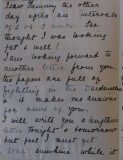 Dear Jimmy the other
day after an interval
the
thought I was looking
fat & well!
I am looking forward to
another letter from you
the papers are full of
fighting in the Dardanelles
& it makes me anxious
for news of you.
I will write you a lengthier
letter tonight & tomorrow
but just I must get
sunshine while it